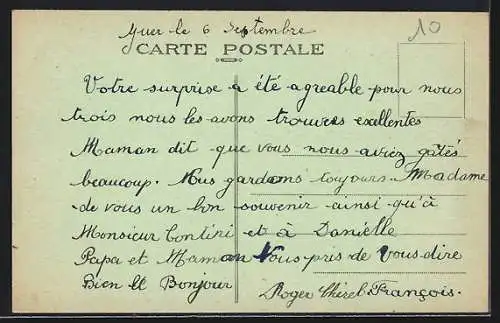 Yuer le 6 Septembre
10
CARTE POSTALE
Votre surprise a été agreable pour nous
trois nous les avons trouvées exellentes
Maman dit que vous nous aviez gâtés
beaucoup. Nous gardons toujours Madame
de vous un bon souvenir ainsi qu'à
Monsieur Contini et à Danielle
Papa et Maman Vous pris de Vous dire
Bien le Bonjour
Roger François.